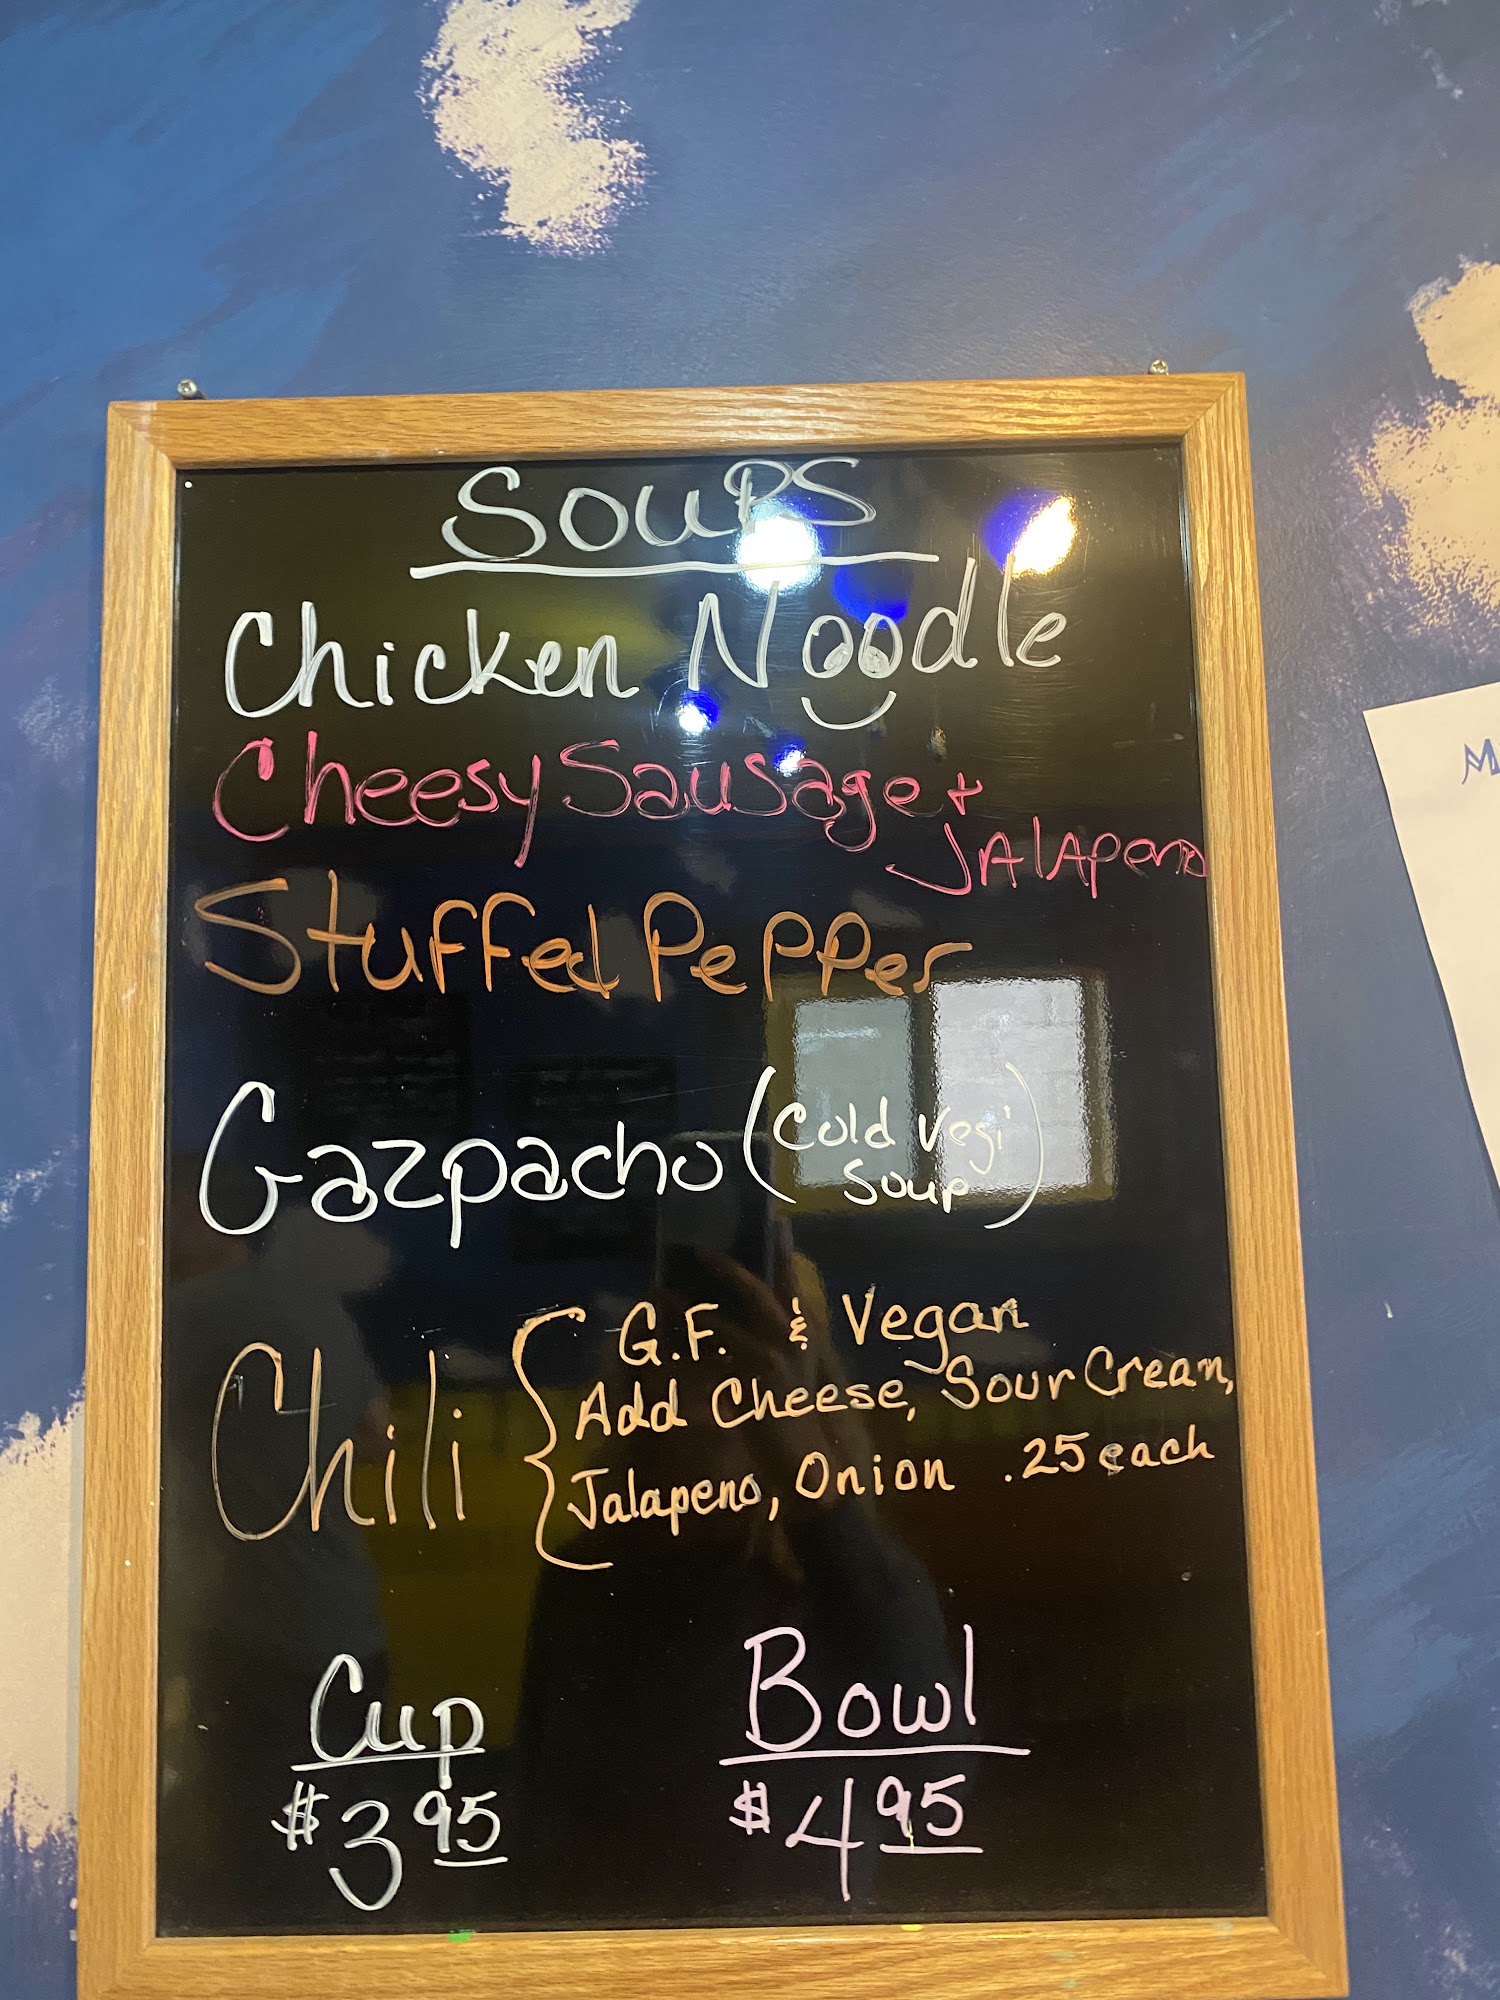 Soups
Chicken Noodle
Cheesy Sausage +
Jalapeno
Stuffed Pepper
Gazpacho (Cold Vegi
Soup)
Chili { G.F. & Vegan
Add Cheese, Sour Cream,
Jalapeno, Onion .25 each
Cup Bowl
$3.95 $4.95